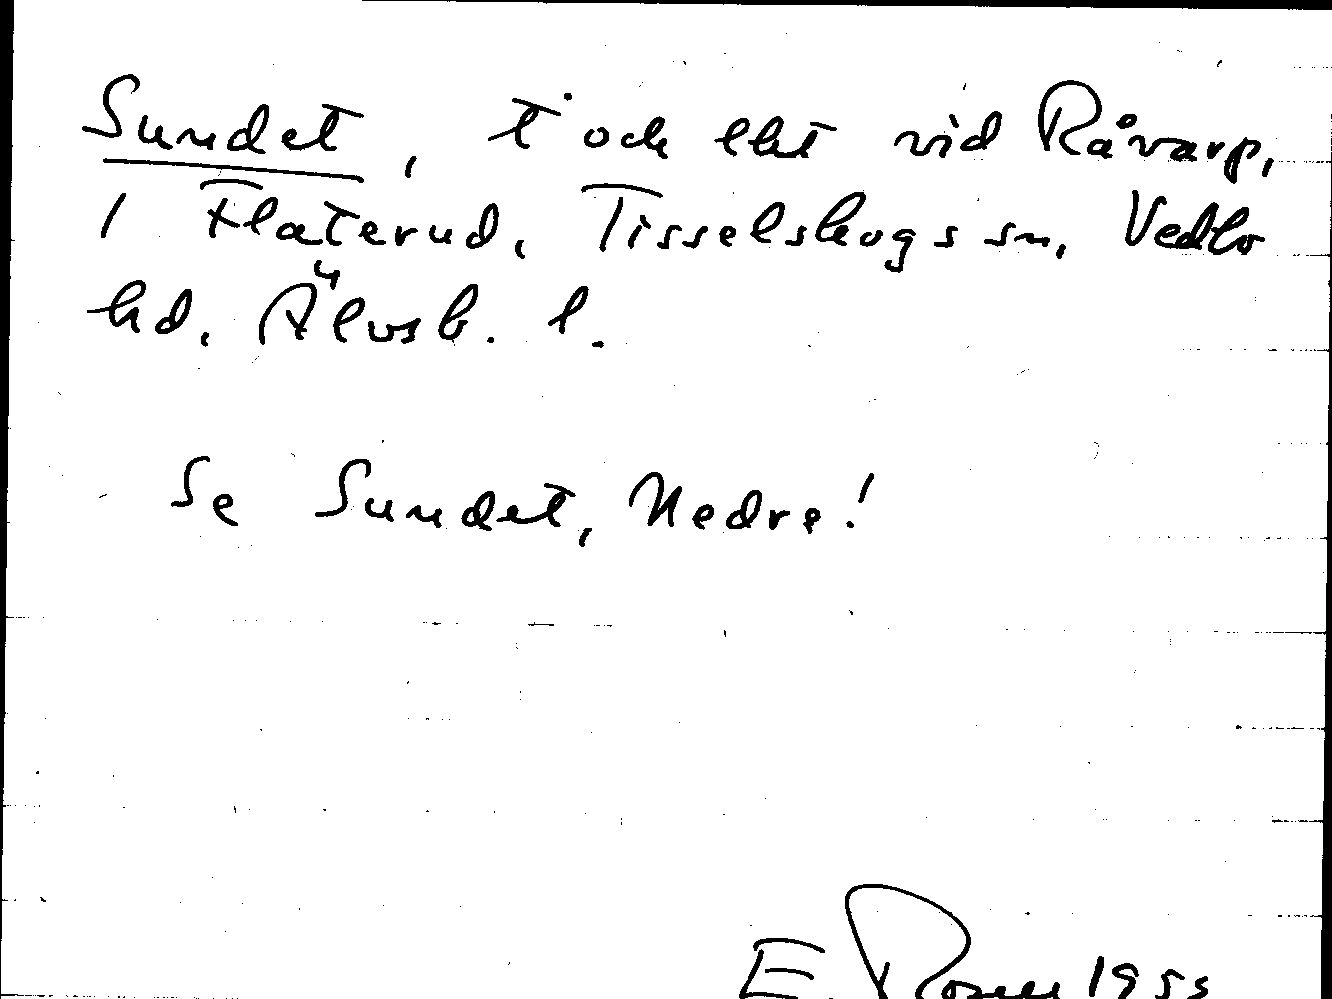 Sundet, t och lht vid Råvarp,
1 Flaterud, Tisselskogs sn, Vedbo
hd. Älvsb. l.
Se Sundet, Nedre!
E. Rosell 1955